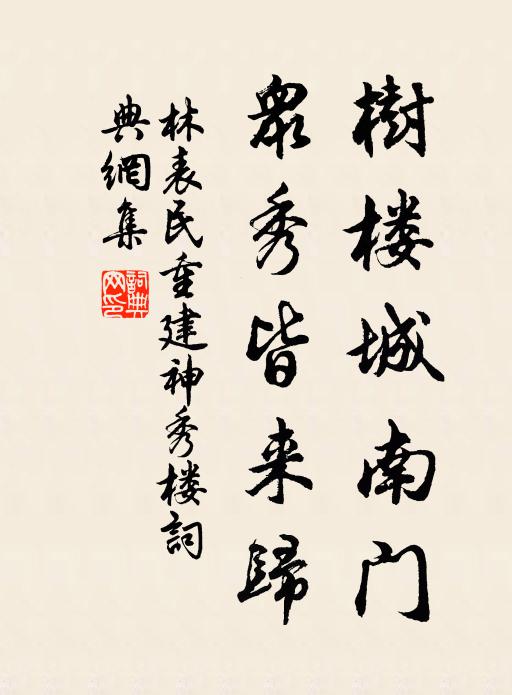 樹楼城南门
眾秀皆来歸
林表民重建神秀楼詞
典網集
詞典网印